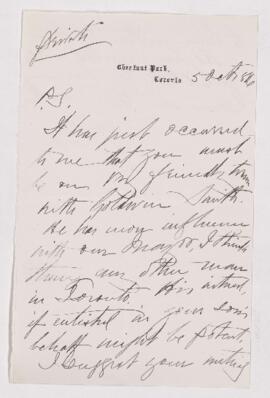 Private
Chestnut Park,
Toronto
5 Oct
P.S.
It has just occurred
to me that you must
be on friendly terms
with Goldwin Smith.
He has more influence
with our Mayor, I think
than any other man
in Toronto. His interest,
if enlisted in your son's
behalf might be potent.
I suggest your writing